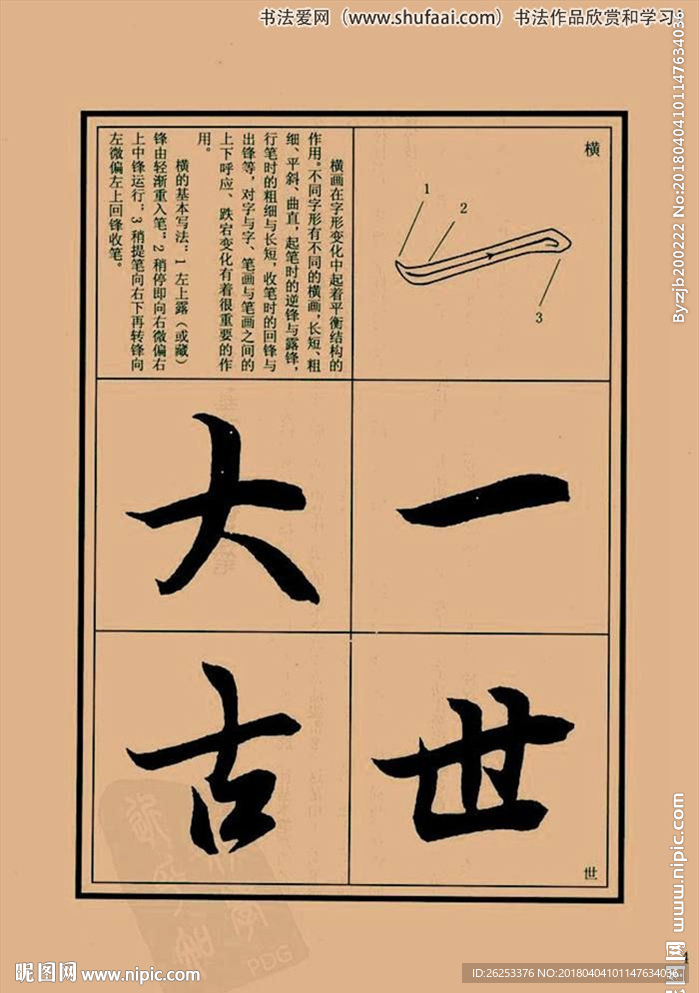 书法爱网（www.shufaai.com）书法作品欣赏和学习：
横
1
2
3
横画在字形变化中起着平衡结构的
作用。不同字形有不同的横画，长短、粗
细、平斜、曲直，起笔时的逆锋与露锋，
行笔时的粗细与长短，收笔时的回锋与
出锋等，对字与字、笔画与笔画之间的
上下呼应、跌宕变化有着很重要的作
用。
横的基本写法：1 左上露（或藏）
锋由轻渐重入笔；2 稍停即向右微偏右
上中锋运行；3 稍提笔向右下再转锋向
左微偏左上回锋收笔。
一
世
大
古
世
PDG
昵图网 www.nipic.com
ID:26253376 NO:20180404101147634036
By:zjb200222 No:20180404101147634036
昵图网 www.nipic.com